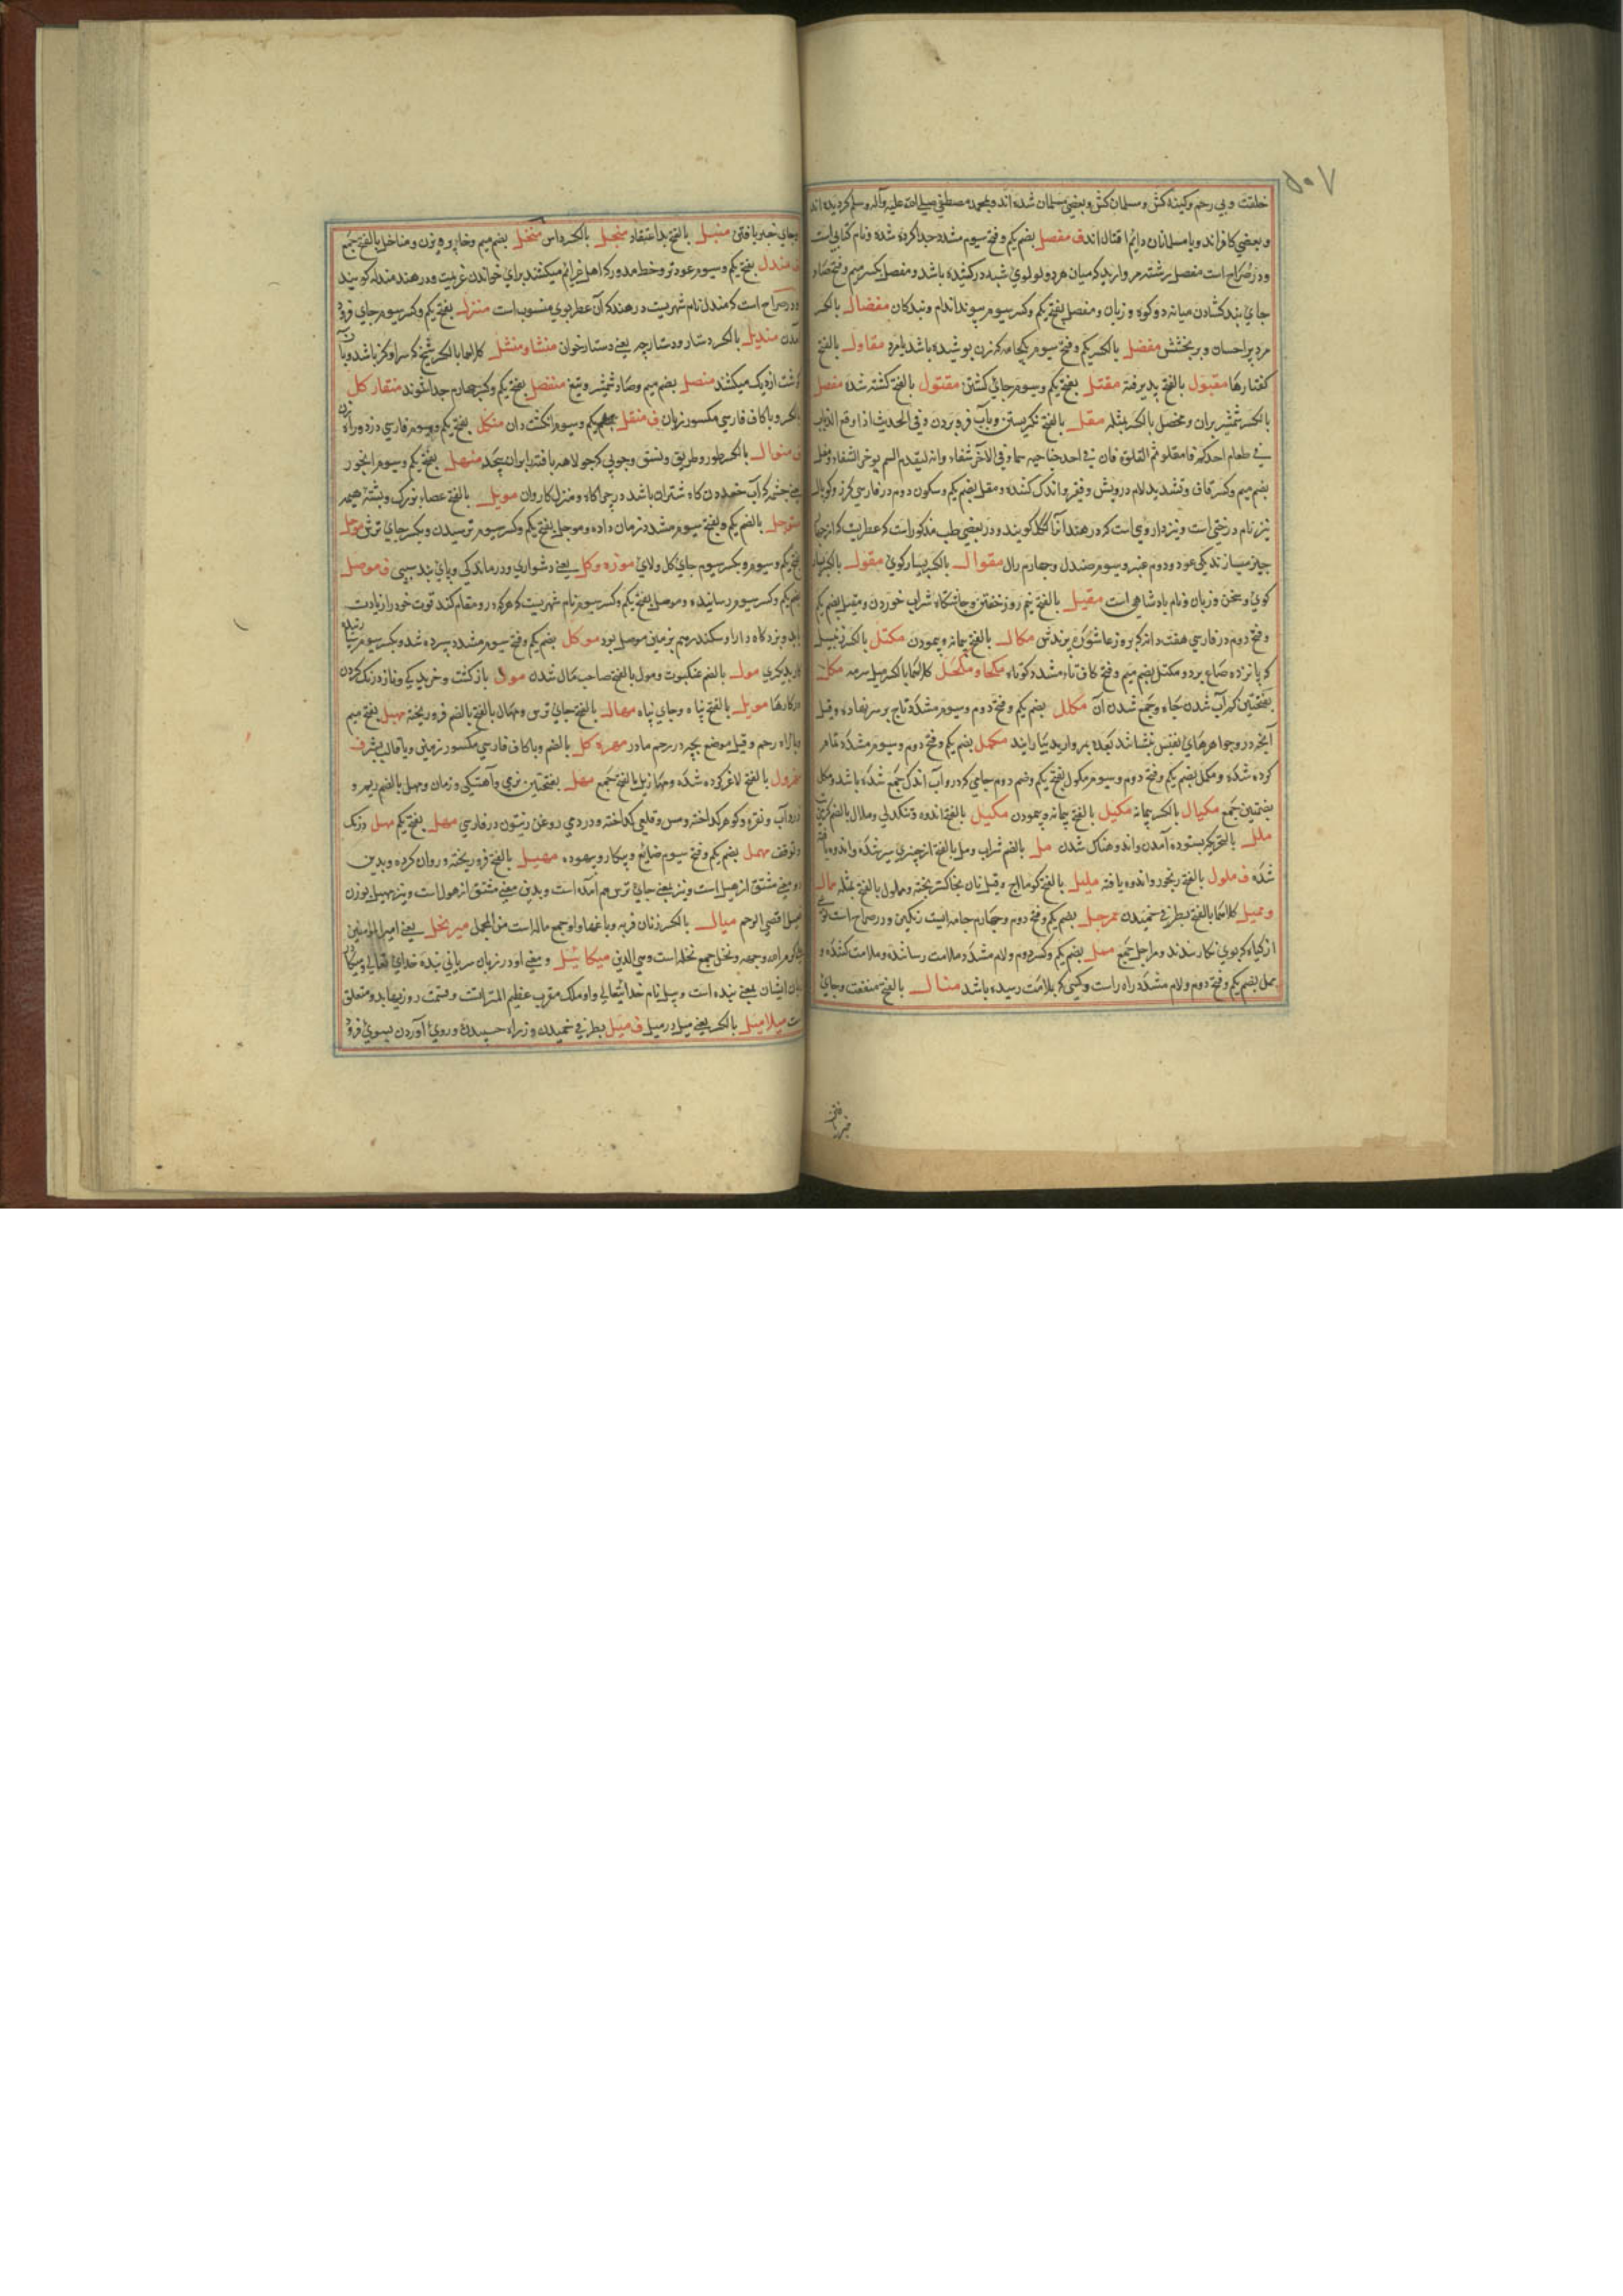 ۵۰۷
خلقت و بی رحم و کینه کش و مسلمان کش و بعضی مسلمان شده اند و بمحمد مصطفی صلی الله علیه وآله وسلم گردیده اند
و بعضی کافر اند و با مسلمانان دائم اقتال اند ف مفصل بضم یکم و فتح سیوم مشدد جدا کرده شده و نام کتابی است
و در صراح است مفصل رشته مروارید که میان هر دو لولوی شبه در کشیده باشد و مفصل بکسر میم و فتح صاد
جای بند گشادن میانه دو کوه و زبان و مفصل بفتح یکم و کسر سیوم پیوند اندام و بندکان مفضال بالکسر
مرد پر احسان و پر بخشش مفضل بالکسر یکم و فتح سیوم یکجامه که زن پوشیده باشد یا مرد مقاول بالفتح
گفتارها مقبول بالفتح پذیرفته مقتل بفتح یکم و سیوم جای کشتن مقتول بالفتح کشته شده مفصل
بالکسر شمشیر بران و مخصل بالکسر مثله مقل بالفتح نگریستن و بآب فرو بردن و فی الحدیث اذا وقع الذباب
فی طعام احدکم فامقلوه ثم انقلوه فان فی احد جناحیه سما و فی الآخر شفاء وانه لیقدم السم یوخر الشفاء و مقل
بضم میم و کسر قاف و تشدید لام درویش و فقیر و اندک کننده و مقل بضم یکم و سکون دوم در فارسی
نیز نام درختی است و نیز داروی است که در هند آنرا گوگل گویند و در بعضی طب مذکور است که عطریست که از چهار
چیز میسازند یکی عود و دوم عنبر و سیوم صندل و چهارم رال مقوال بالکسر بسیار گوی مقول بالکسر بسیار
گوی و سخن و زبان و نام پادشاهی است مقیل بالفتح نیم روز خفتن و چاشتگاه شراب خوردن و مقیل بضم یکم
و فتح دوم در فارسی هفت دانه که بروز عاشوره پزندش مکال بالفتح پیمانه و پیمودن مکتل بالکسر زنبیل
که پانزده صاع برد و مکتل بضم میم و فتح کاف تاء مشدد کوتاه مکحل و مکحال کلاهما بالکسر میل سرمه مکل
بفتحتین کم آب شدن چاه و جمع شدن آن مکلل بضم یکم و فتح دوم و سیوم مشدد تاج بر سر نهاده و قیل
آنچه در و جواهرهای نفیس نشانند و بعده بمروارید بیارایند مکمل بضم یکم و فتح دوم و سیوم مشدد تمام
کرده شده و مکل بضم یکم و فتح دوم و سیوم مکول بفتح یکم و ضم دوم چاهی که در و آب اندک جمع شده باشد و مکل
بضمتین جمع مکیال بالکسر پیمانه مکیل بالفتح پیمانه و پیمودن مکیل بالفتح اندوه و تنگدلی و ملال بالضم
ملل بالتحریک بستوه آمدن و اندوهناک شدن مل بالضم شراب و مل بالفتح از چیزی سیر شده و اندوه یافته
شده ف ملول بالفتح رنجور و اندوه یافته ملیل بالفتح کوماج و قیل نان بخاکستر پخته و مملول بالفتح مثله ممال
و ممیل کلاهما بالفتح بطرفی خمیدن ممرجل بضم یکم و فتح دوم و چهارم جامه ایست رنگین و در صراح است
از کتان که بروی نگار بندند و مراجل جمع ممل بضم یکم و کسر دوم و لام مشدد ملامت رسانده و ملامت کننده و
ممل بضم یکم و فتح دوم و لام مشدد راه راست و کسی که بملامت رسیده باشد منال بالفتح منفعت و جای
و جای چیز یافتن منبل بالفتح بد اعتقاد منجل بالکسر داس منخل بضم میم و خا پرویزن و مناخل بالفتح جمع
ف مندل بفتح یکم و سیوم عود تر و خط مدور که اهل عزائم میکشند برای خواندن عزیمت و در هند مندله گویند
و در صراح است که مندل نام شهریست در هند که آن عطر بوی منسوب است منزل بفتح یکم و کسر سیوم جای فرود
آمدن مندیل بالکسر دستار و دستارچه یعنی دستارخوان منشال و منشل کلاهما بالکسر سیخ که سر او کژ باشد و بآن
گوشت از دیگ میکشند منصل بضم میم و صاد شمشیر و تیغ منفصل بفتح یکم و کسر چهارم جدا شونده منقار کل
بالکسر و با کاف فارسی مکسور زبان ف منقل بفتح یکم و سیوم انگشت دان منکل بفتح یکم و سیوم فارسی دزد و راه زن
ف منوال بالکسر طور و طریق و نسق و چوبی که جولاهه بافته بران پیچد منهل بفتح یکم و سیوم آبخور
یعنی چشمه که آب خوردن گاه شتران باشد در چراگاه و منزل کاروان موبل بالفتح عصاء بزرگ و پشته هیمه
موجل بالضم یکم و بفتح سیوم مشدد زمان داده و موجل بفتح یکم و کسر سیوم ترسیدن و بکسر جای ترس موحل
بفتح یکم و سیوم و بکسر سیوم جای گل و لای موزه و کل یعنی دشواری و درماندگی و پای بند سببی ف موصل
بضم یکم و کسر سیوم رسانیده و موصل بفتح یکم و کسر سیوم نام شهریست که هر که درو مقام کند قوت خود را زیادت
یابد و بزدگاه دارا و سکندر هم بزمین موصل بود موکل بضم یکم و فتح سیوم مشدد سپرده شده و بکسر سیوم
کار بدیگری مول بالضم عنکبوت و مول بالفتح صاحب مال شدن مول بازگشت و خزیدگی و ناز و درنگ کردن
در کارها مویل بالفتح پناه و جای پناه مهال بالفتح جای ترس و مهال بالفتح بالضم فرو ریخته مهبل بفتح میم
و با راه رحم و قیل موضع بچه در رحم مادر مهره کل بالضم و با کاف فارسی مکسور زمین و یا قالب بشر ف
مهزول بالفتح لاغر کرده شده و مهازیل بالفتح جمع مهل بفتحتین نرمی و آهستگی و زمان و مهل بالضم ریم و
زرداب و نقره و گوهر گداخته و مس و قلعی گداخته و دردی روغن زیتون در فارسی مهل بفتح یکم مهل درنگ
و توقف مهمل بضم یکم و فتح سیوم ضایع و بیکار و بیهوده مهیل بالفتح فرو ریخته و روان کرده و بدین
دو معنی مشتق از هیل است و نیز بمعنی جای ترس هم آمده است و بدین معنی مشتق از هول است و نیز مهبل بوزن
مهبل اقصی الرحم میال بالکسر زنان فربه و با غفار او جمع ماله است من المجمل میر نحل یعنی امیر المؤمنین
علی کرم الله وجهه و نحل جمع نحله است و هی الدین میکائیل و معنی او در زبان سریانی بنده خدای تعالی و میکا
زبان ایشان بمعنی بنده است و ییل نام خدا تعالی و او ملک مقرب عظیم المنزلت است و قسمت روزیها بدو متعلق
است میلا میل بالکسر یعنی میل در میل ف میل بطرفی خمیدن و ز راه چسپیدن و روی آوردن بسوی فرود